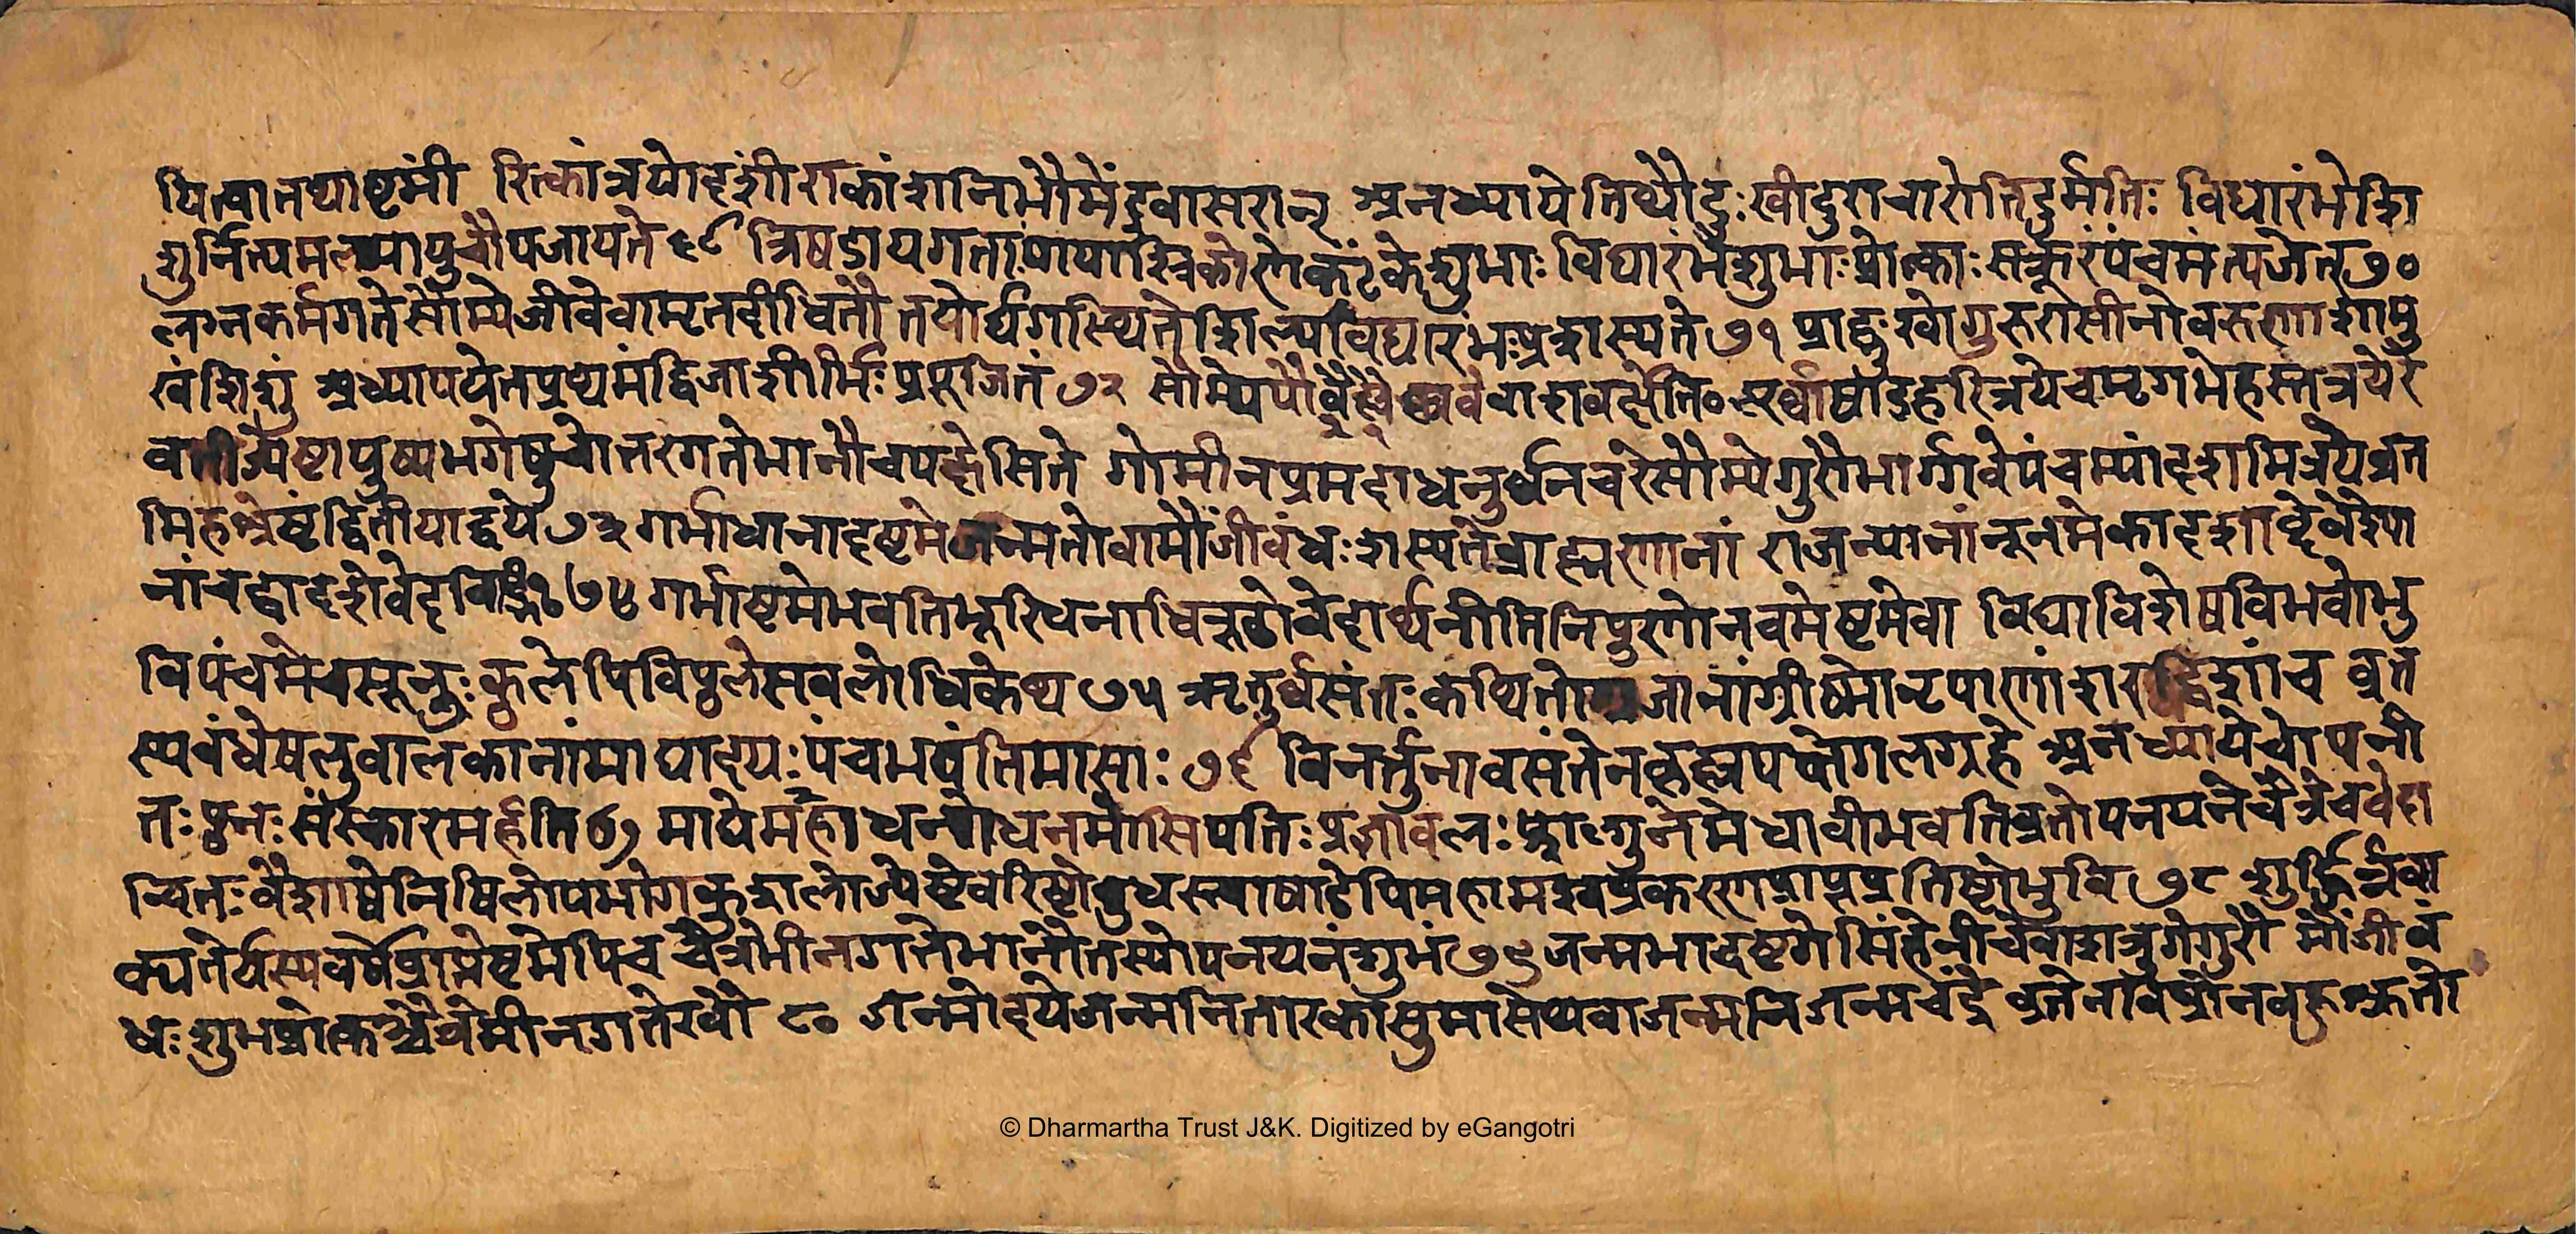 यित्वातथाष्टमीं रिक्तांत्रयोदशींराकांशनिभौमेंदुवासरान् अनध्यायेतिथौदुःखीदुराचारोतिदुर्मतिः विद्यारंभेशि
शुर्नित्यमल्पायुश्चोपजायते ६९ त्रिषडायगताःपापास्त्रिकोणेकंटकेशुभाः विद्यारंभेशुभाःप्रोक्ताः सक्रूरंपंचमंत्यजेत् ७०
लग्नकर्मगतेसौम्येजीवेवामृतदीधितौ तयोर्द्यंगस्थितेशिल्पविद्यारंभःप्रशस्यते ७१ प्राङ्मुखोगुरुरासीनोवरुणाशामु
खंशिशुं अध्यापयेतप्रथमंद्विजाशीर्भिःप्रपूजितं ७२
वतीज्येष्टापुष्यभगेषुचोत्तरगतेभानौचपक्षेसिते गोमीनप्रमदाधनुर्धनचरेसौम्येगुरौभार्गवेपंचम्यांदशमित्रये
द्वितीयाद्वये ७३ गर्भाधानादष्टमेजन्मतोवामौंजीवंधःशस्यतेब्राह्मणानां राजन्यानांनूनमेकादशाब्देवैश्या
नांचद्वादशेवेदविद्भिः ७४ गर्भाष्टमेभवतिभूरिधनाधिरूढोवेदार्थनीतिनिपुणोनवमेष्टमेवा विद्याविशेषविभवोभु
विपंचमेचसूनुःकुलेपिविपुलेसवलोधिकेथ ७५ ऋतुर्वसंतःकथितोग्रजानांग्रीष्मोनृपाणांशरद्विशांच व्रत
स्यवंधेषलुवालकानांमाघादयःपंचभवंतिमासाः ७६ विनर्त्तुनावसंतेनकृष्णपक्षेगलग्रहे अनध्यायेचोपनी
तःपुनःसंस्कारमर्हति ७७ माघेमहाधन्योधनमासिपतिःप्रज्ञावलःफाल्गुनेमेधावीभवतिव्रतोपनयनेचैत्रेचवेदा
न्वितःवैशाषेनिषिलोपभोगकुशलोज्येष्टेवरिष्टोवुधस्त्वाषाढेपिमहामखप्रकरणप्राप्तप्रतिष्टोभुवि ७८ शुद्धिर्न्नैवा
क्यतेर्यस्यवर्षेप्राप्तेष्टमेपिच चैत्रेमीनगतेभानौतस्योपनयनंशुभं ७९ जन्मभादष्टगेसिंहेनीचेवाशत्रुगेगुरौ मौंजीवं
धःशुभप्रोक्तश्चैत्रेमीनगतेरवौ ८० जन्मोदयेजन्मनितारकासुमासेथवाजन्मनिजन्मचंद्रे व्रतेनविप्रोनवहुश्रुतो
© Dharmartha Trust J&K. Digitized by eGangotri